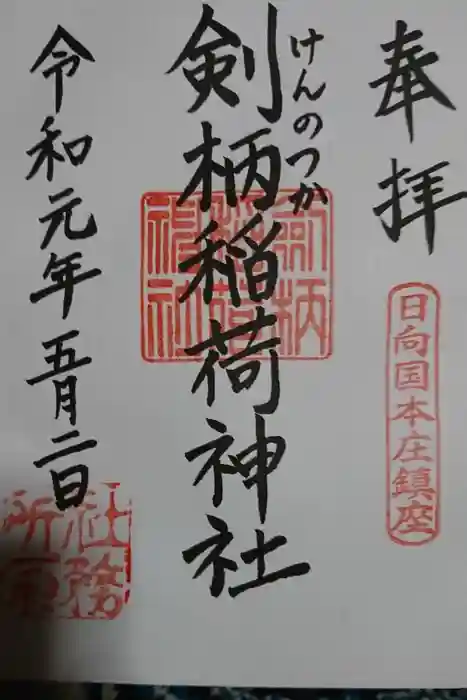 奉拝
日向国本庄鎮座
けんのつか
剣柄稲荷神社
剣柄稲荷神社
令和元年五月二日
社務所